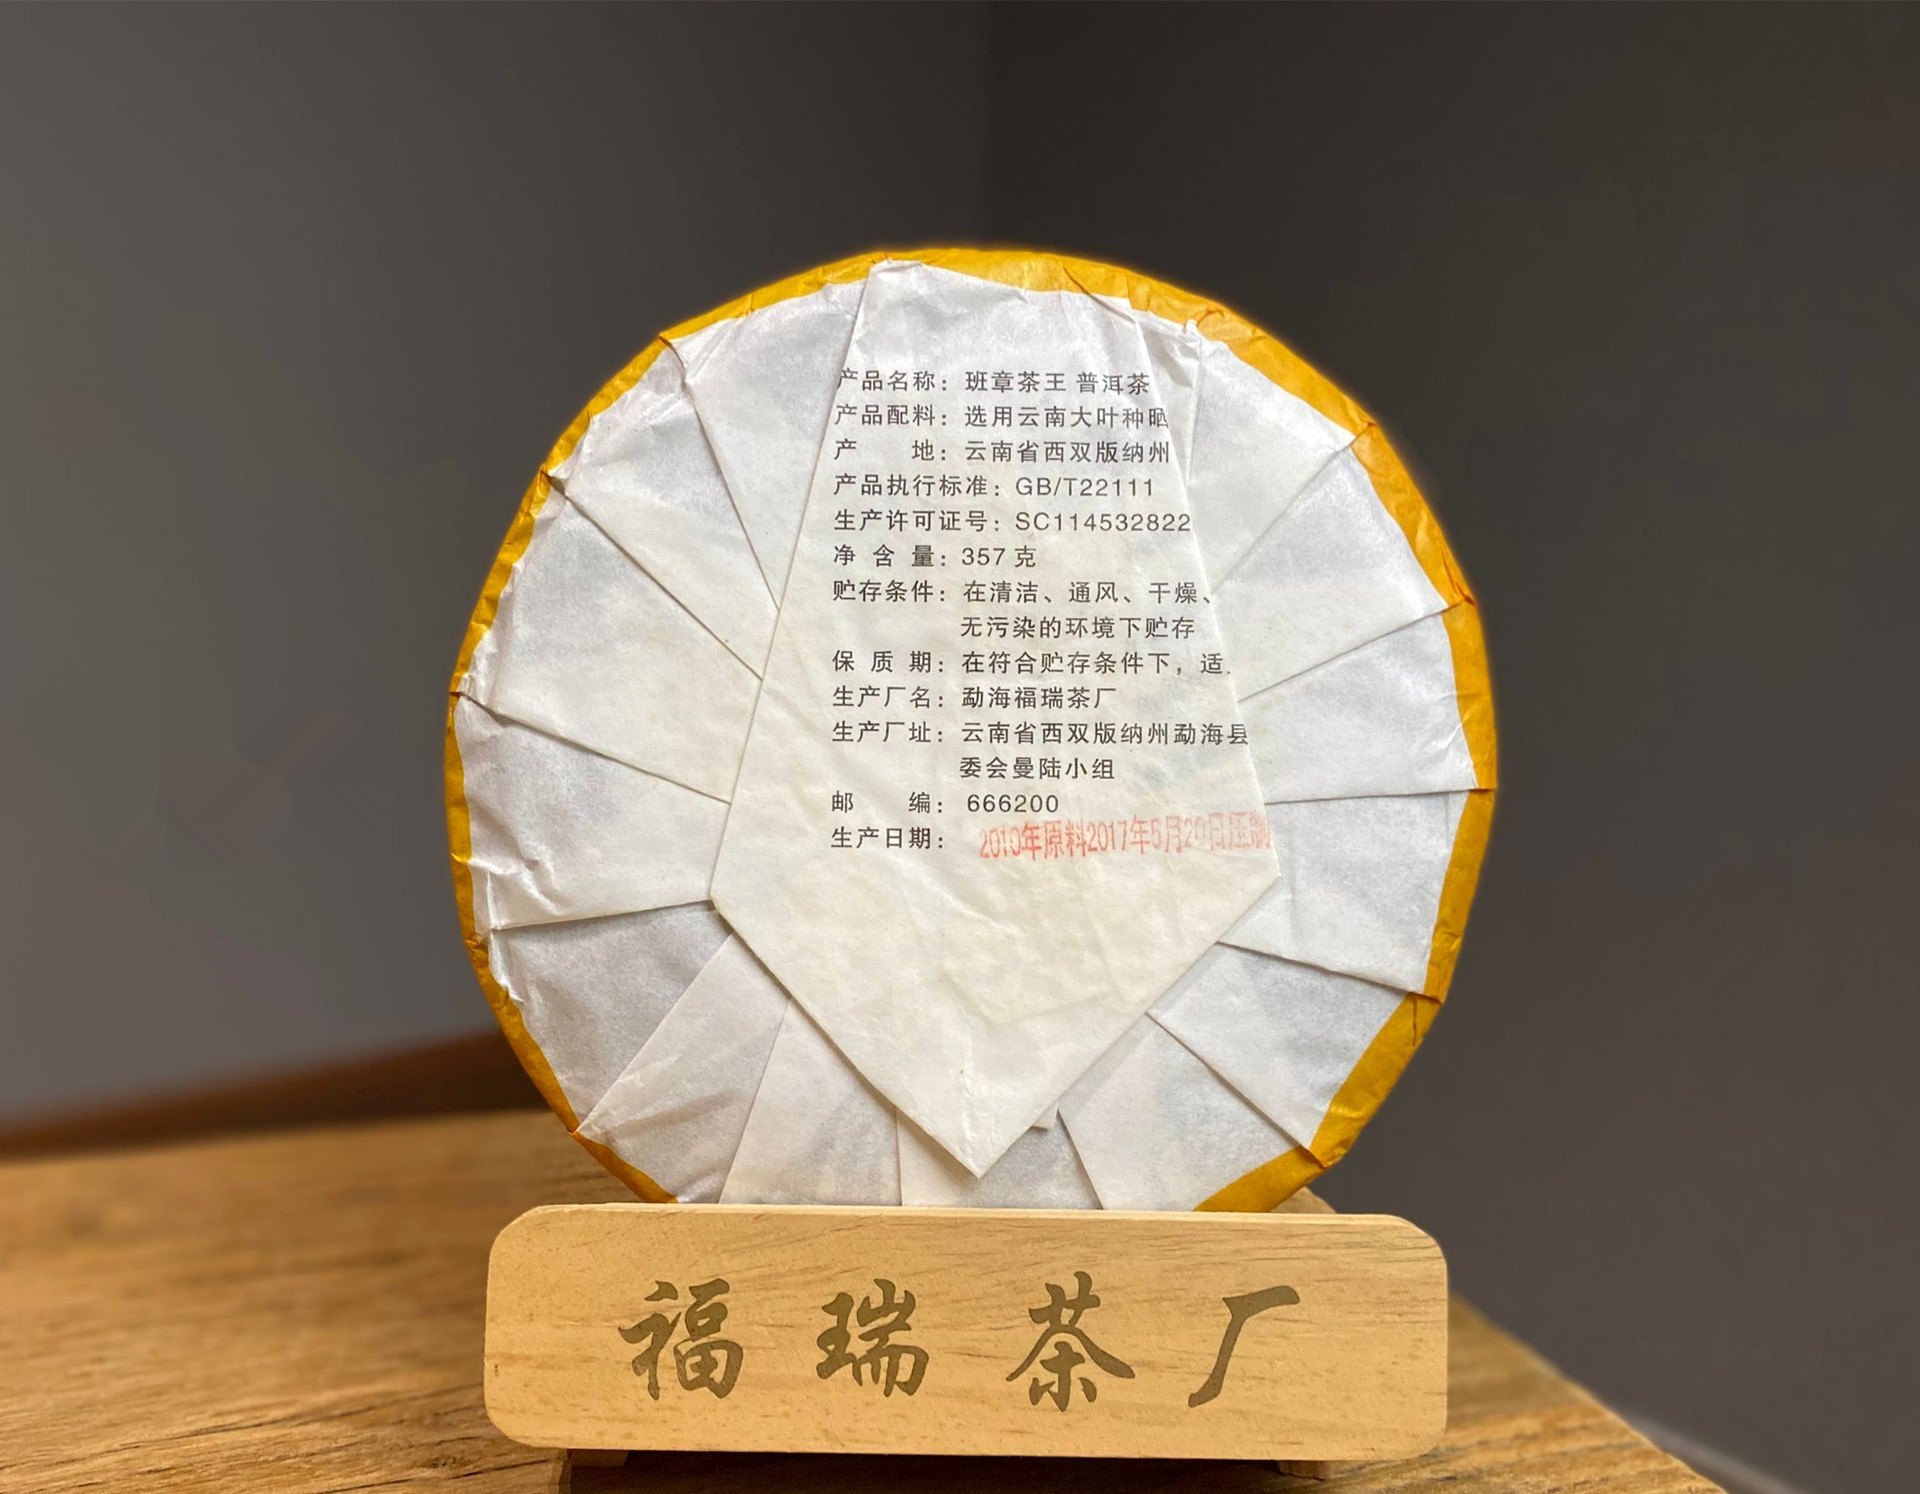 产品名称：班章茶王 普洱茶
产品配料：选用云南大叶种晒
产　　地：云南省西双版纳州
产品执行标准：GB/T22111
生产许可证号：SC114532822
净 含 量：357 克
贮存条件：在清洁、通风、干燥、
无污染的环境下贮存
保 质 期：在符合贮存条件下，适
生产厂名：勐海福瑞茶厂
生产厂址：云南省西双版纳州勐海县
委会曼陆小组
邮　　编：666200
生产日期：2010年原料2017年5月20日压制
福瑞茶厂